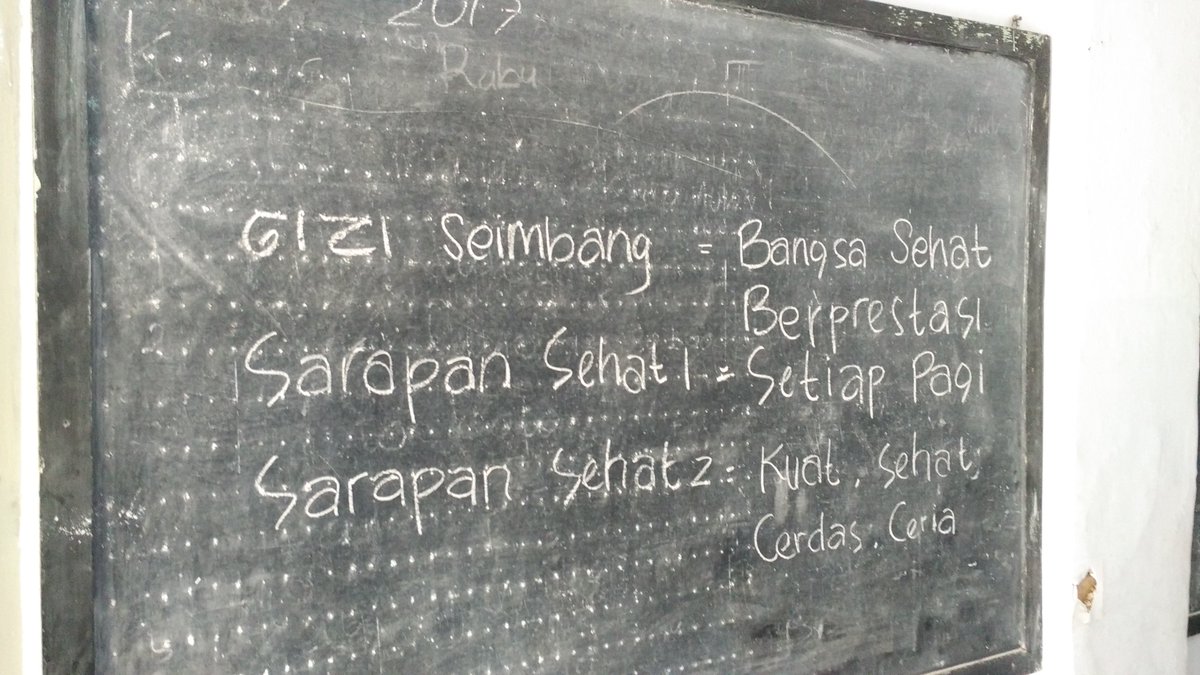 2017
Rabu
GIZI Seimbang = Bangsa Sehat
Berprestasi
Sarapan Sehat 1 = Setiap Pagi
Sarapan Sehat 2 = Kuat, Sehat,
Cerdas, Ceria